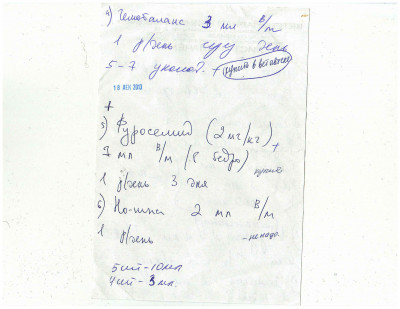 4) Гемобаланс 3 мл в/м
1 р/день через день
5-7 уколов. + купить в ветаптеке
18 АПР 2013
+
5) Фуросемид (2 мг/кг) +
1 мл в/м /в бедро/ купить
1 р/день 3 дня
6) Но-шпа 2 мл в/м
1 р/день - не надо.
5 шт - 10 мл
4 шт - 3 мл.